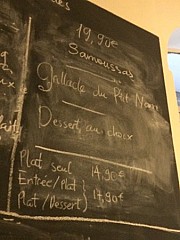 19,90€
Samoussas
Gallade du Ptit Nancy
Dessert au choix
Plat seul 14,90€
Entrée/Plat } 17,90€
Plat/Dessert)